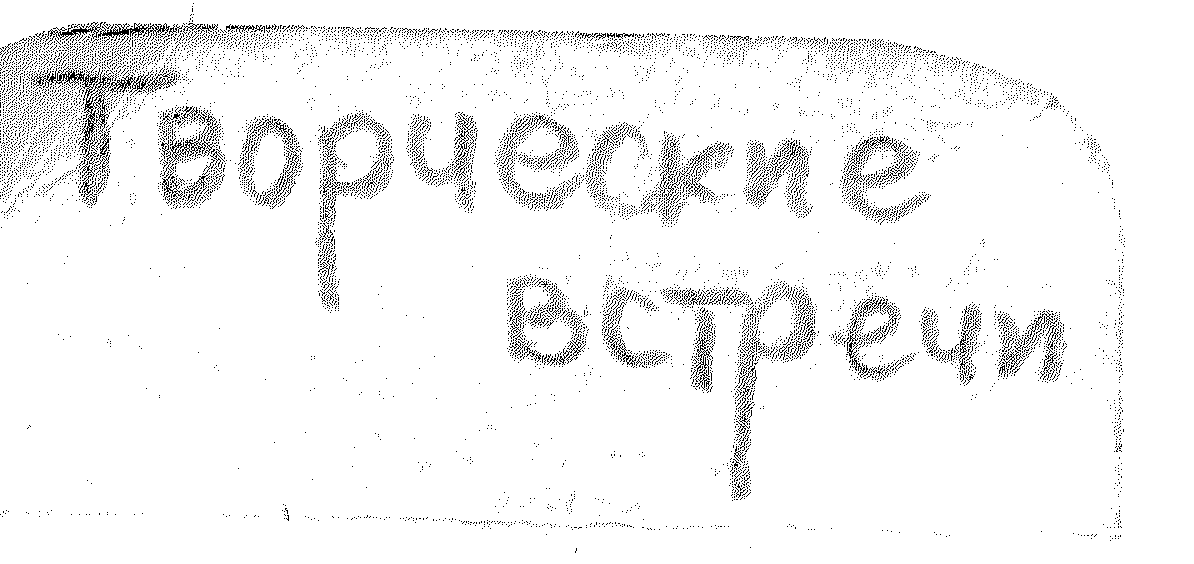 Творческие
встречи